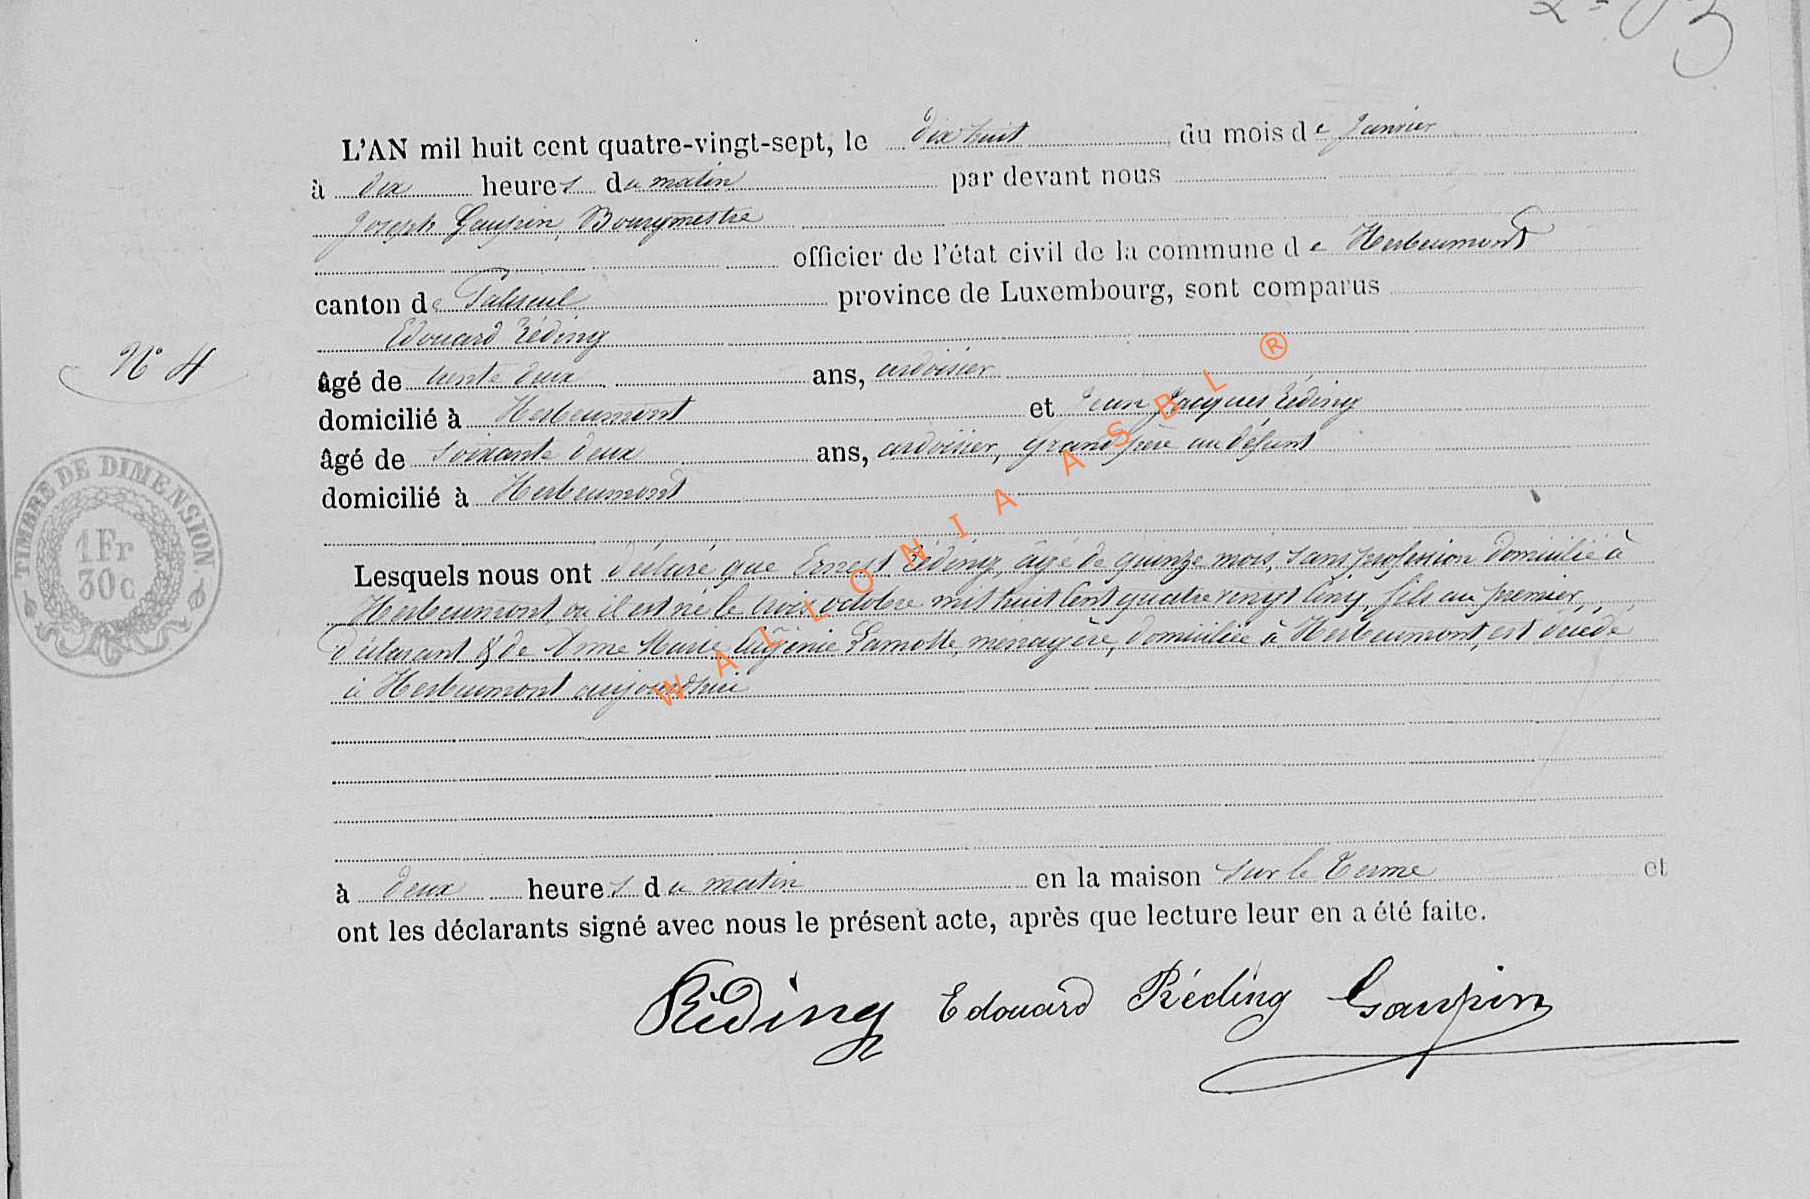 L'AN mil huit cent quatre-vingt-sept, le dix huit du mois de Janvier
à dix heures du matin par devant nous
Joseph Gaupin, Bourgmestre
officier de l'état civil de la commune de Herbeumont
canton de Paliseul province de Luxembourg, sont comparus
Edouard Réding
N° 4
âgé de trente deux ans, ardoisier
domicilié à Herbeumont et Jean Jacques Réding
âgé de soixante deux ans, ardoisier, grand père au défunt
domicilié à Herbeumont
TIMBRE DE DIMENSION
1 Fr
30 c
Lesquels nous ont déclaré que Ernest Réding, âgé de quinze mois, sans profession domicilié à
Herbeumont, où il est né le trois octobre mil huit cent quatre vingt cinq, fils au premier,
déclarant & de Anne Marie Eugénie Lamotte, ménagère, domiciliée à Herbeumont, est décédé
à Herbeumont aujourd'hui
à deux heures du matin en la maison sur le Terme et
ont les déclarants signé avec nous le présent acte, après que lecture leur en a été faite.
Réding Edouard Réding Gaupin
WALLONIA ASBL ®